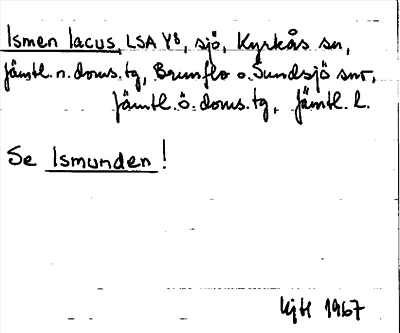 Ismen lacus, LSA Y8, sjö, Kyrkås sn,
Jämtl. n. doms. tg, Brunflo o. Sundsjö snr,
Jämtl. ö. doms. tg, Jämtl. l.
Se Ismunden!
1967